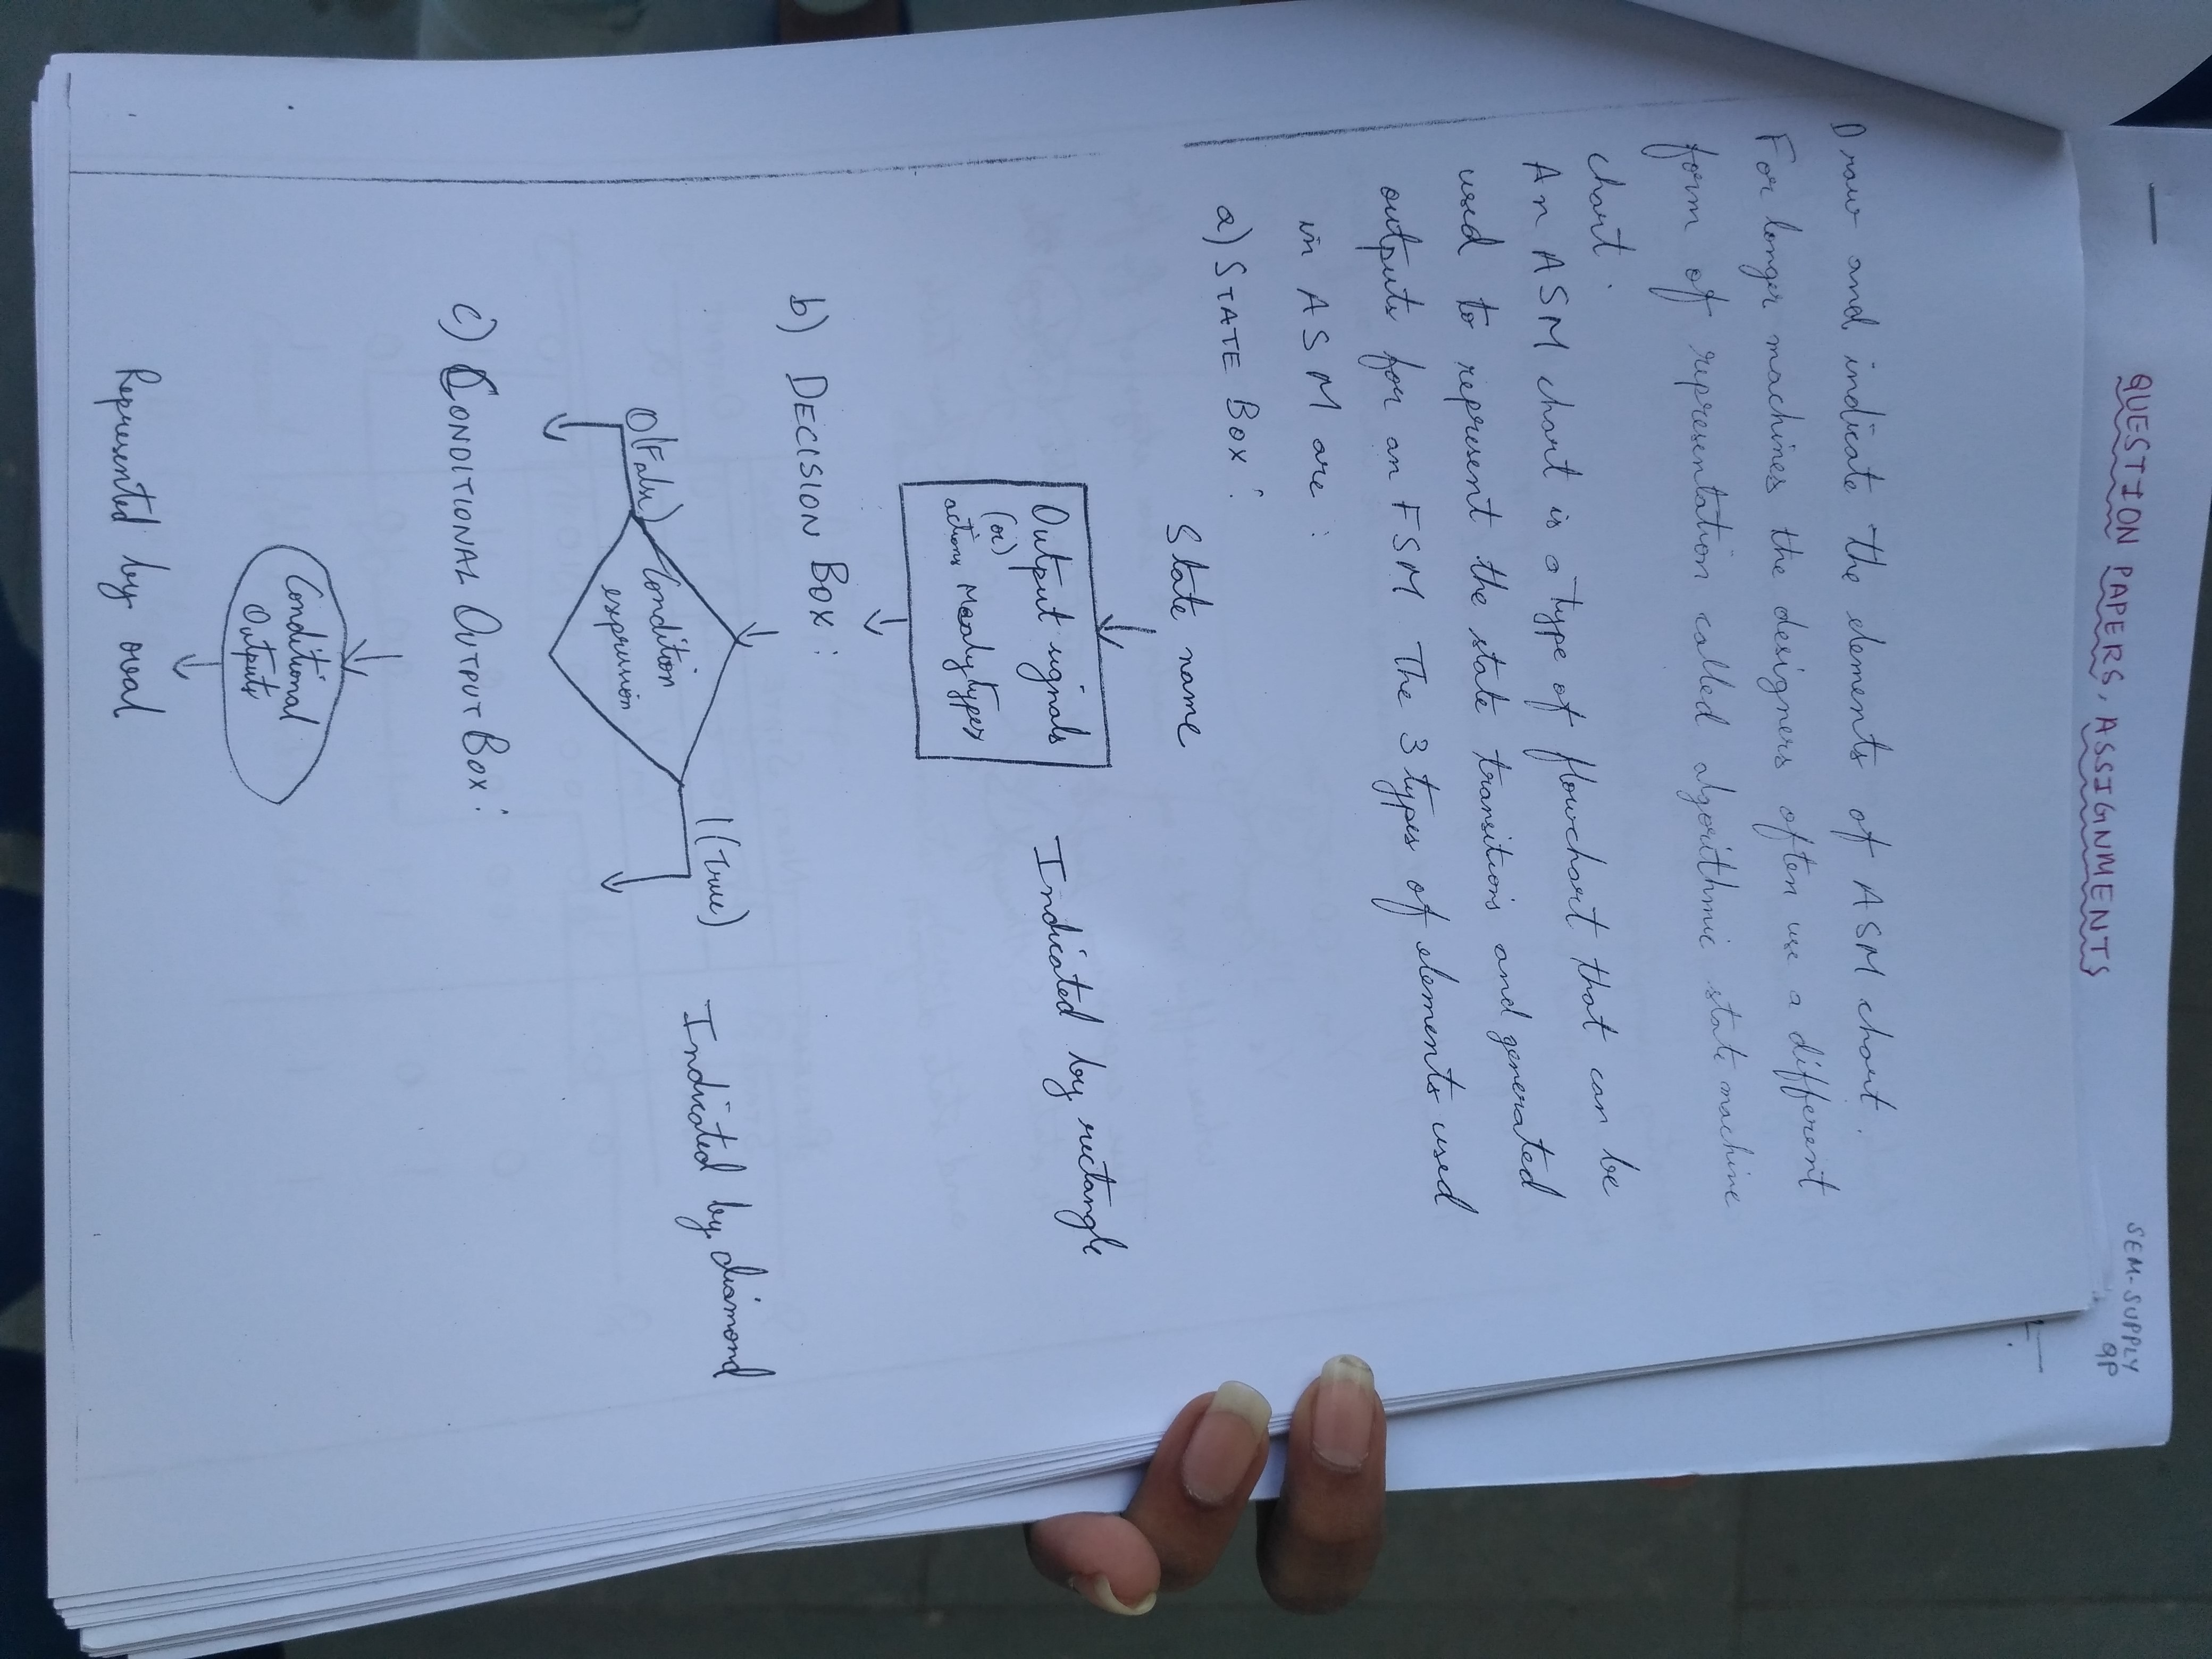 QUESTION PAPERS, ASSIGNMENTS
SEM-SUPPLY
QP
Draw and indicate the elements of ASM chart.
For longer machines the designers often use a different
form of representation called algorithmic state machine
chart.
An ASM chart is a type of flowchart that can be
used to represent the state transitions and generated
outputs for an FSM. The 3 types of elements used
in ASM are :
a) STATE BOX:
State name
Output signals
(or)
actions Mealy types
Indicated by rectangle
b) DECISION BOX :
0(False)
Condition
expression
1(True)
Indicated by diamond
c) CONDITIONAL OUTPUT BOX:
Conditional
Outputs
Represented by oval